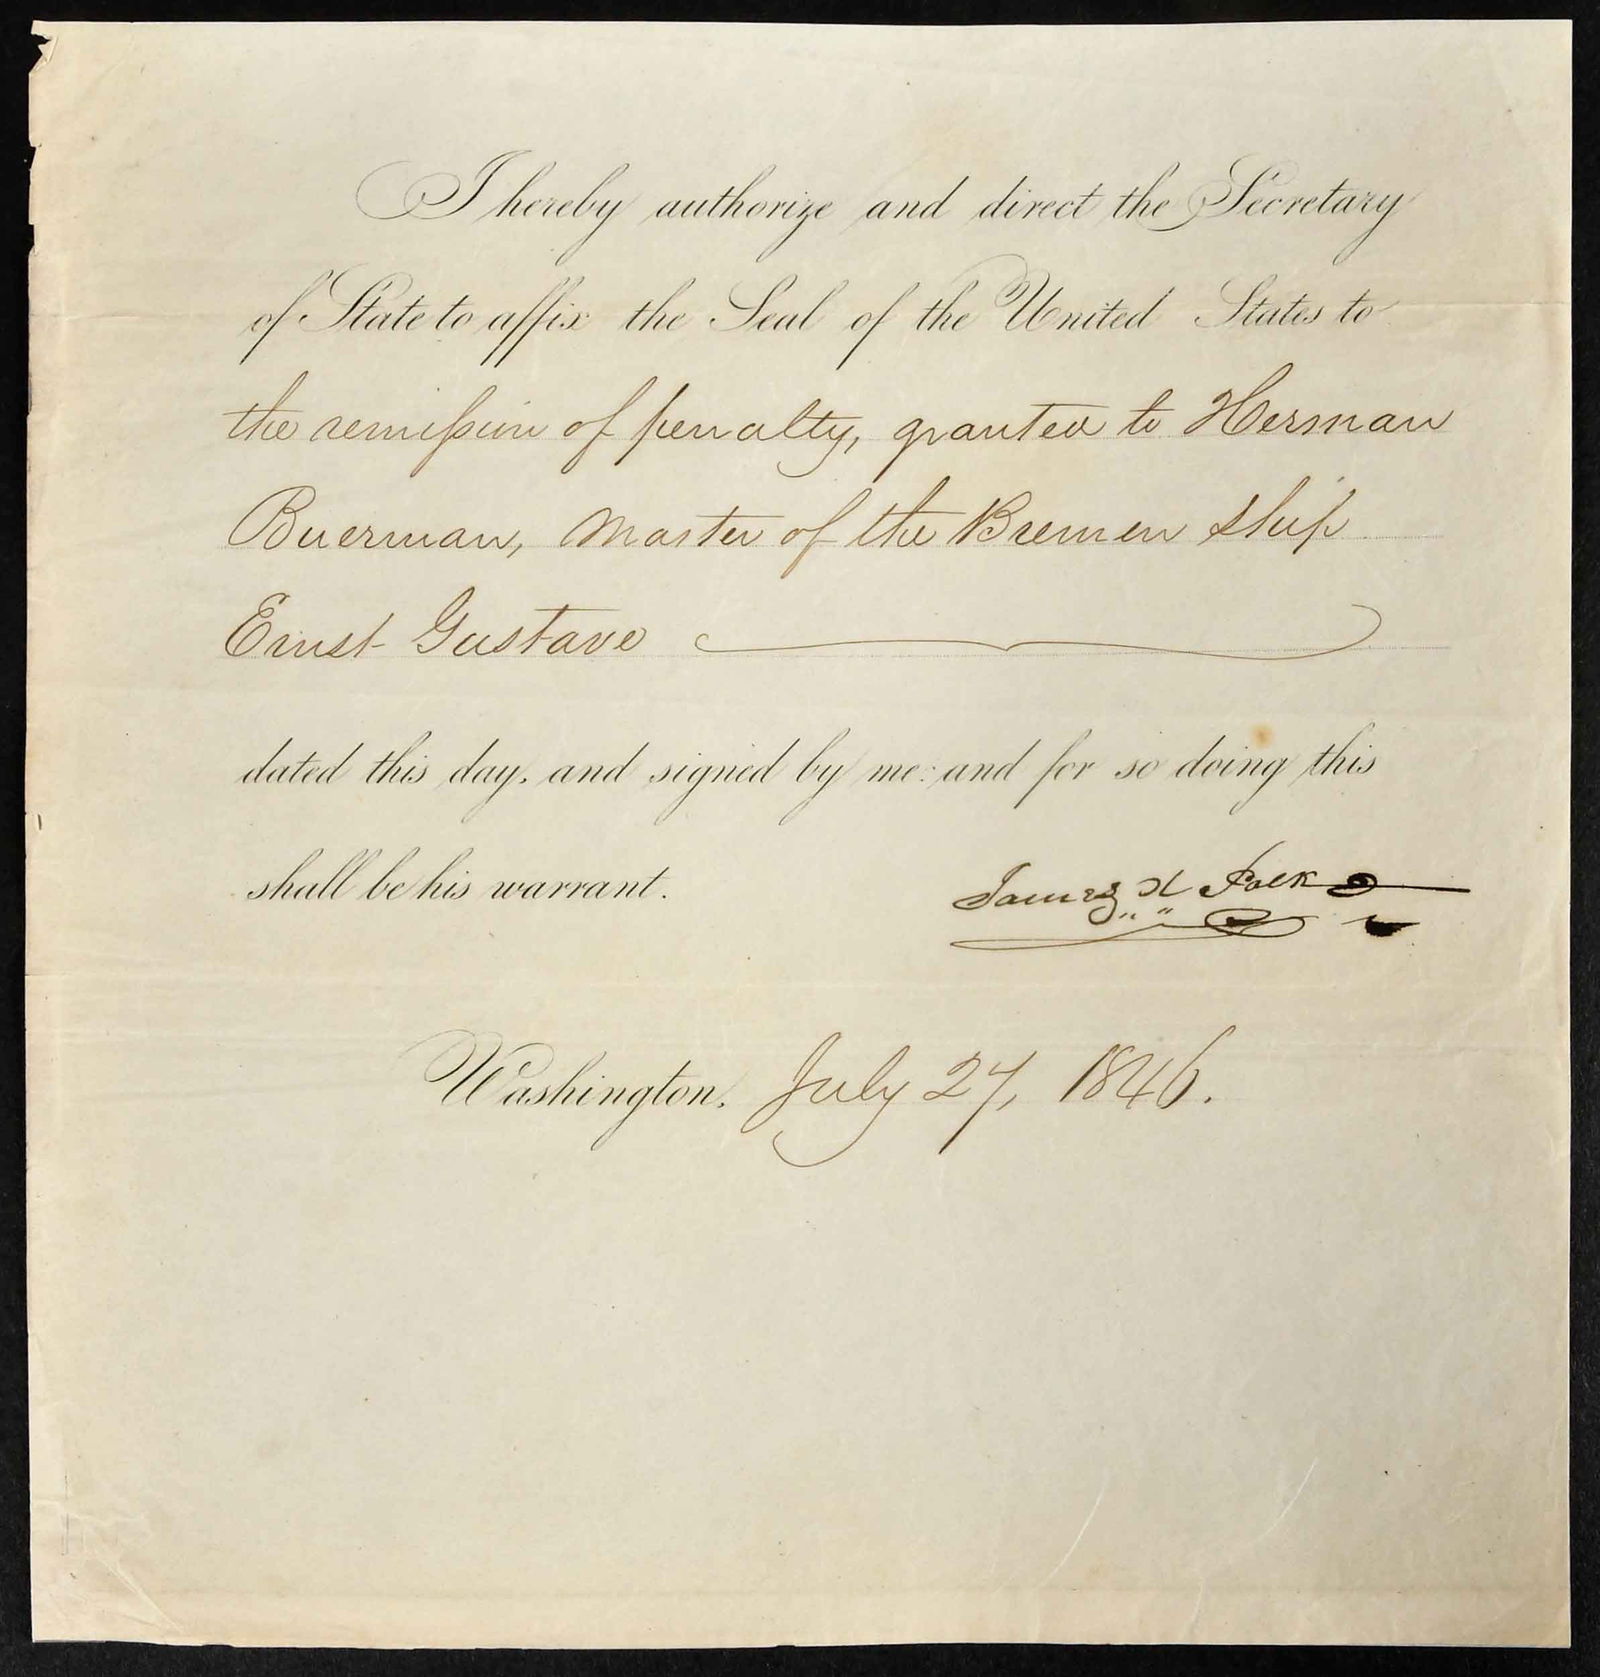 I hereby authorize and direct the Secretary
of State to affix the Seal of the United States to
the remission of penalty, granted to Herman
Buerman, Master of the Bremen ship
Ernst Gustave
dated this day, and signed by me: and for so doing this
shall be his warrant.
James K Polk
Washington, July 27, 1846.